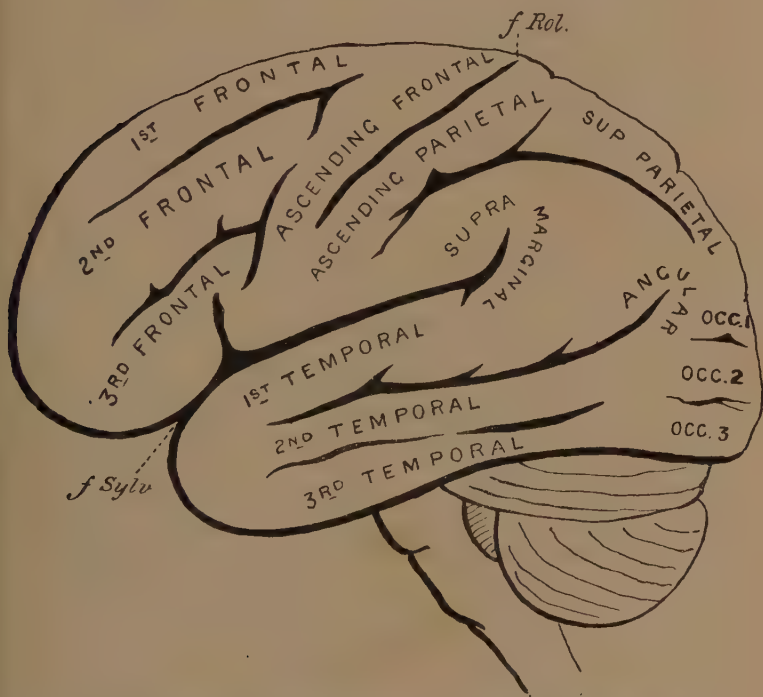 f Rol.
1ST FRONTAL
2ND FRONTAL
3RD FRONTAL
ASCENDING FRONTAL
ASCENDING PARIETAL
SUP PARIETAL
SUPRA MARGINAL
ANGULAR
OCC. 1
OCC. 2
OCC. 3
1ST TEMPORAL
2ND TEMPORAL
3RD TEMPORAL
f Sylv